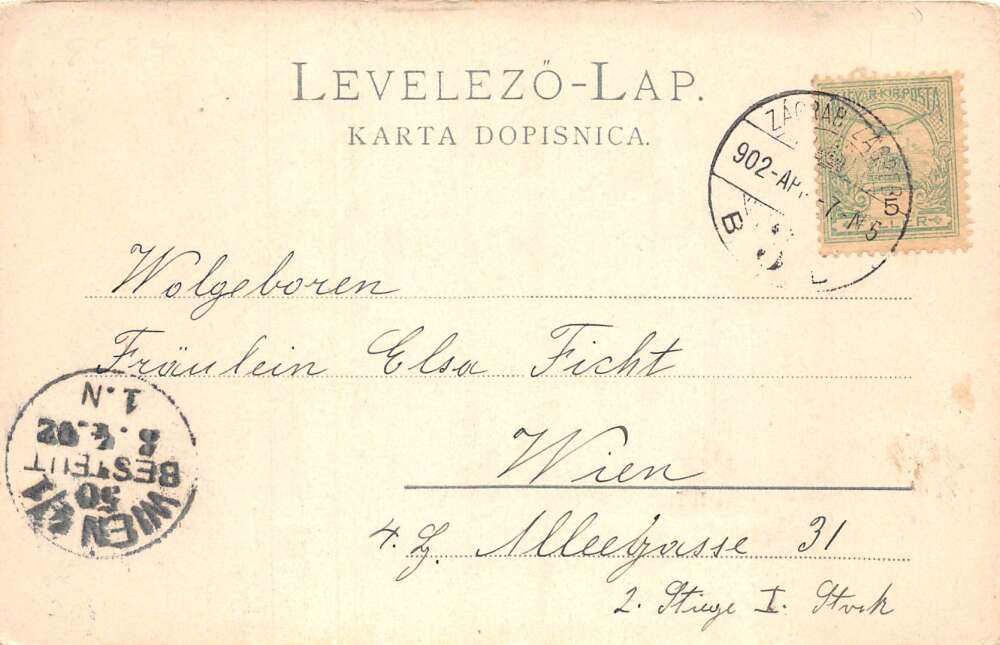 LEVELEZŐ-LAP.
KARTA DOPISNICA.
MAGYAR·KIR·POSTA
5
ZÁGRÁB ZAGREB
902-APR-7-N5
B
Wolgeboren
Fräulein Elsa Ficht
Wien
4. Alleegasse 31
2. Stiege I. Stock
WIEN 4/1
50
BESTELLT
8.4.02
1.N